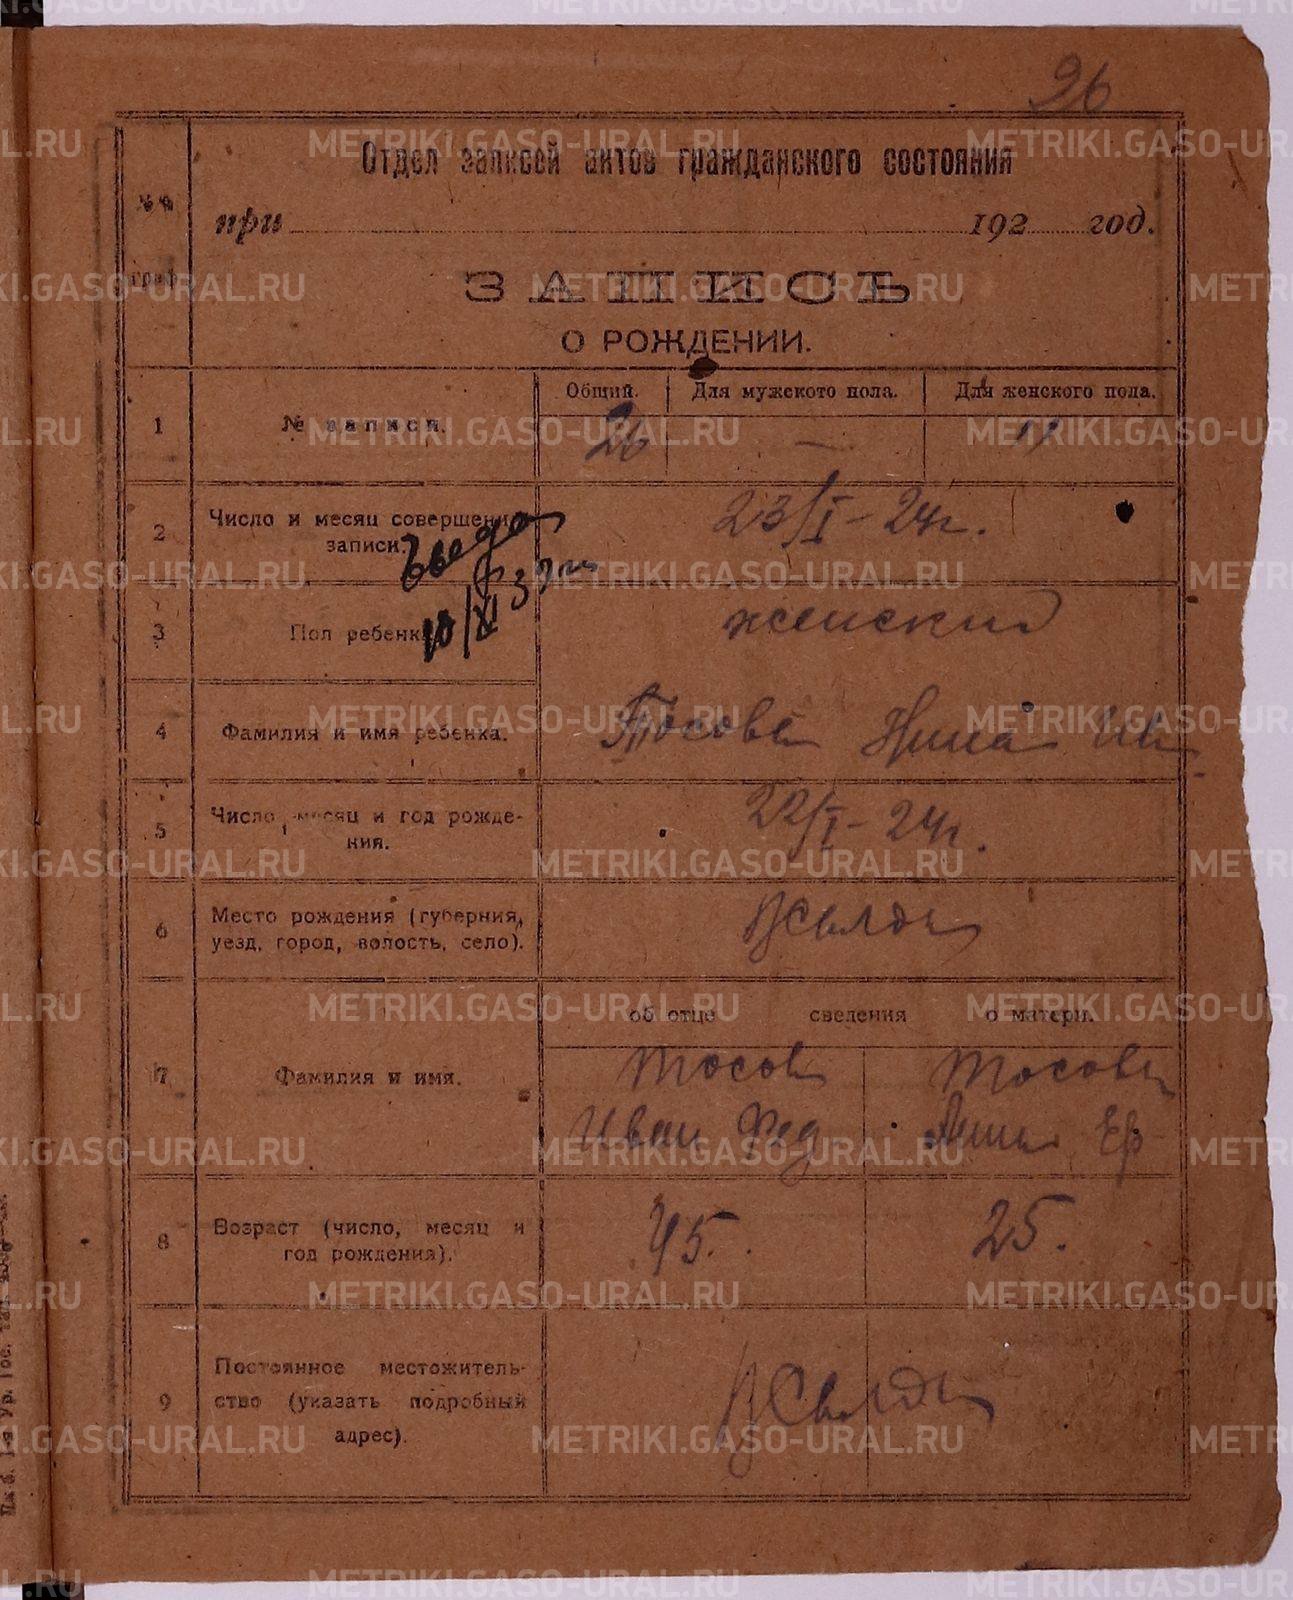 26
Отдел записей актов гражданского состояния
№№ граф
при 192 год.
ЗАПИСЬ
О РОЖДЕНИИ.
Общий. Для мужского пола. Для женского пола.
1 № записи. 26 — 11
2 Число и месяц совершения записи. 23/I – 24 г.
10/XI 37 г.
3 Пол ребенка женский
4 Фамилия и имя ребенка. Тосова Нина Ив
5 Число, месяц и год рожде-
ния. 22/I – 24 г.
6 Место рождения (губерния,
уезд, город, волость, село). В Салда
об отце сведения о матери.
7 Фамилия и имя. Тосов Тосова
Иван Фед. Анна Ер
8 Возраст (число, месяц и
год рождения). 45. 25.
9 Постоянное местожитель-
ство (указать подробный
адрес). В Салда
METRIKI.GASO-URAL.RU